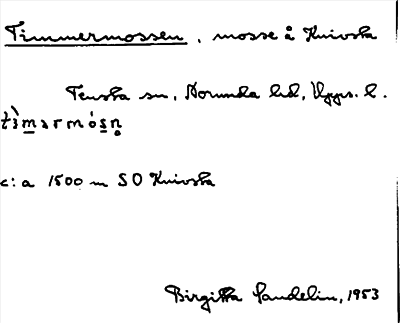 Timmermossen, mosse å Knivsta
Tensta sn, Norunda hd, Upps. l.
tìmərmósn̥
c:a 1500 m SO Knivsta
Birgitta Sandelin, 1953